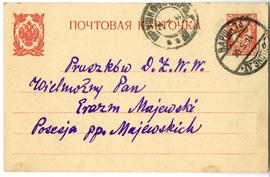 ПОЧТОВАЯ КАРТОЧКА
Pruszków D. Ż. W. W.
Wielmożny Pan
Erazm Majewski
Posesja pp. Majewskich